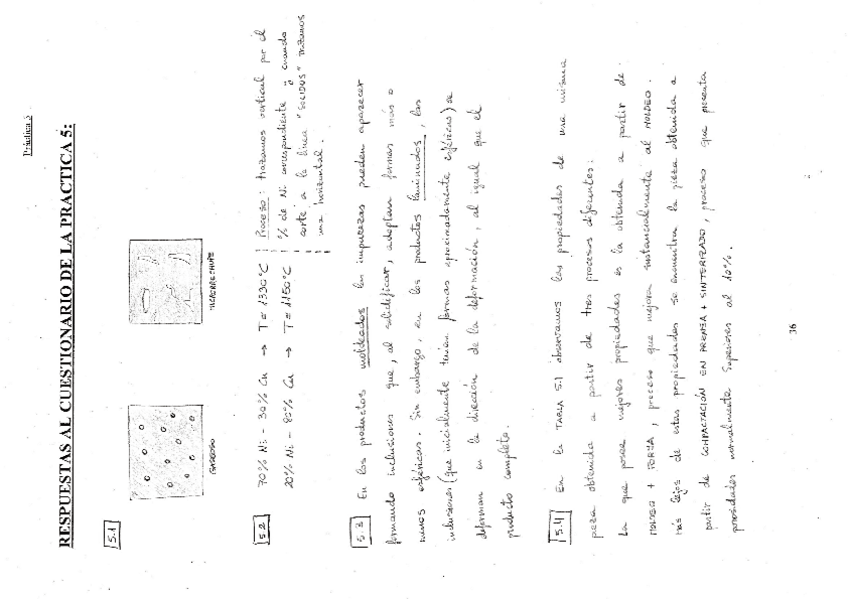 Práctica 5
RESPUESTAS AL CUESTIONARIO DE LA PRACTICA 5:
5.1
GASEOSO
MICRORRECHUPE
5.2
70% Ni - 30% Cu → T = 1330°C
20% Ni - 80% Cu → T = 1150°C
Proceso: trazamos vertical por el
% de Ni correspondiente y cuando
corte a la línea "SOLIDUS" trazamos
una horizontal.
5.3 En los productos moldeados las impurezas pueden aparecer
formando inclusiones que, al solidificar, adoptan formas más o
menos esféricas. Sin embargo, en los productos laminados, las
inclusiones (que inicialmente tenían formas aproximadamente esféricas) se
deforman en la dirección de la deformación, al igual que el
producto completo.
5.4 En la TABLA 5.1 observamos las propiedades de una misma
pieza obtenida a partir de tres procesos diferentes:
La que posee mejores propiedades es la obtenida a partir de
MOLDEO + FORJA, proceso que mejora sustancialmente al MOLDEO.
Más lejos de estas propiedades se encuentra la pieza obtenida a
partir de COMPACTACIÓN EN PRENSA + SINTERIZADO, proceso que presenta
porosidades normalmente superiores al 10%.
36